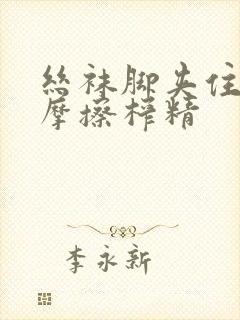 絲袜脚夹住
摩擦榨精
李永新